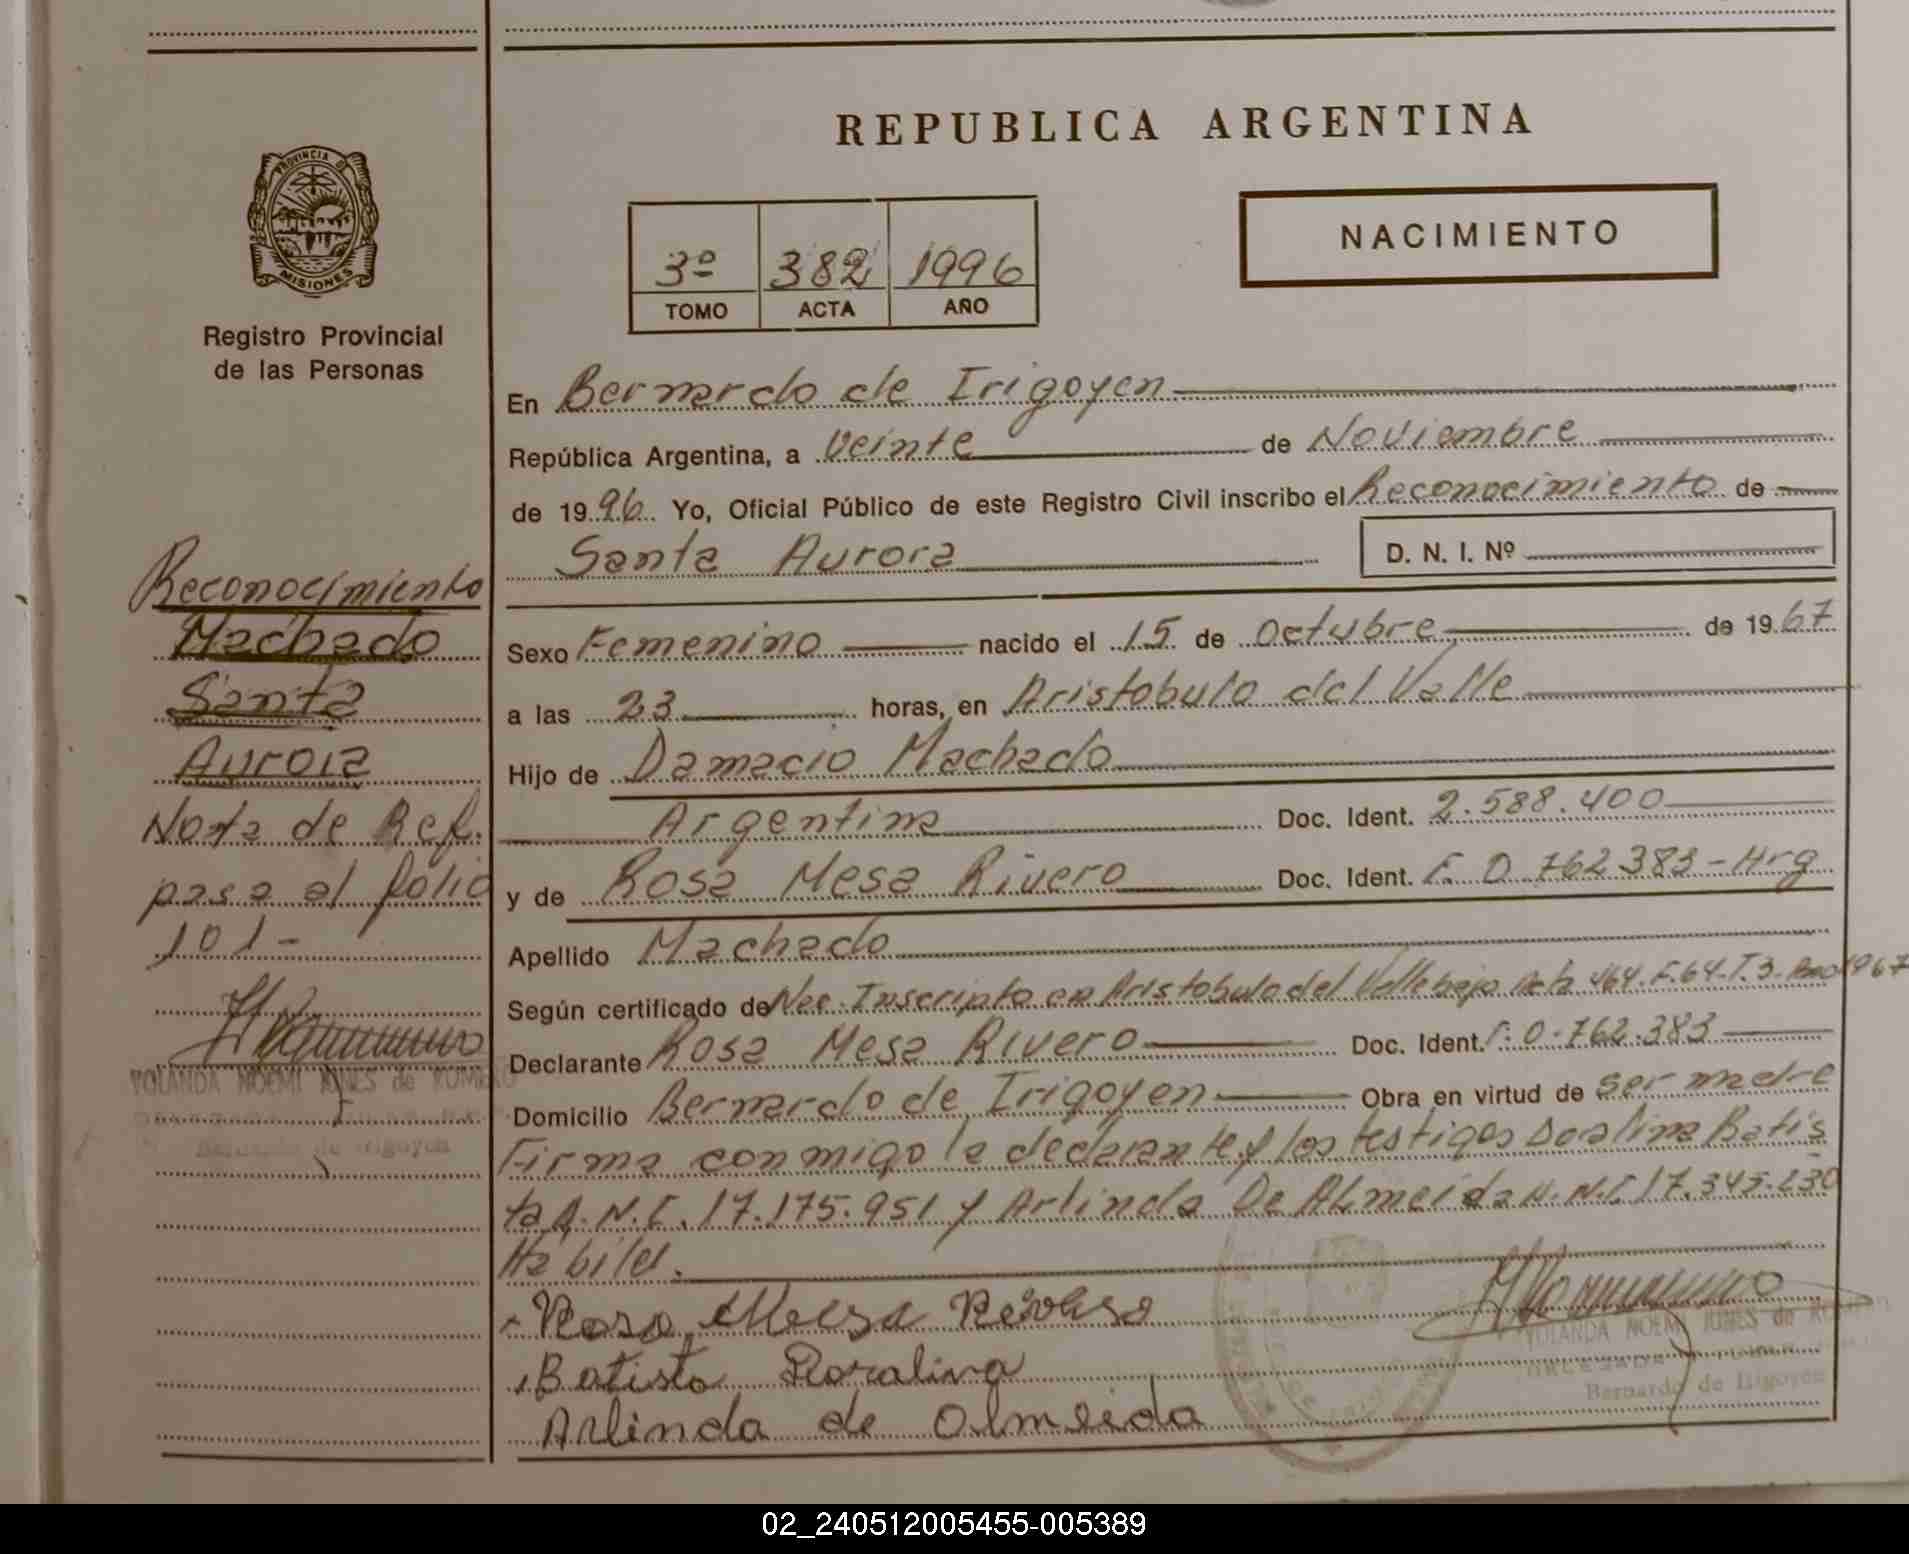 REPUBLICA ARGENTINA
PROVINCIA D
MISIONES
Registro Provincial
de las Personas
3º 382 1996
TOMO ACTA AÑO
NACIMIENTO
En Bernardo de Irigoyen
República Argentina, a Veinte de Noviembre
de 1996 Yo, Oficial Público de este Registro Civil inscribo el Reconocimiento de
Santa Aurora D. N. I. Nº
Sexo Femenino nacido el 15 de octubre de 1967
a las 23 horas, en Aristobulo del Valle
Hijo de Damacio Machado
Argentina Doc. Ident. 2.588.400
y de Rosa Mesa Rivero Doc. Ident. F. 0.762383-Arg
Apellido Machado
Según certificado de Nac. Inscripta en Aristobulo del Valle bajo Acta 464. F.64.T.3. Año 1967
Declarante Rosa Mesa Rivero Doc. Ident. F. 0.762.383
Domicilio Bernardo de Irigoyen Obra en virtud de ser madre
Firma conmigo la declarante y los testigos Batis
ta 17.175.951 y Arlinda De ALmeida 17.345.230
Habild.
Rosa Mecsa
Batista Roralina
Arlinda de Olmeida
YOLANDA NOEMI JONES de
Bernardo de Irigoyen
Reconocimiento
Machado
Santa
Aurora
Nota de Ref.
pasa al folio
101-
YOLANDA NOEMI JONES de ROMERO
Bernardo de Irigoyen
02_240512005455-005389